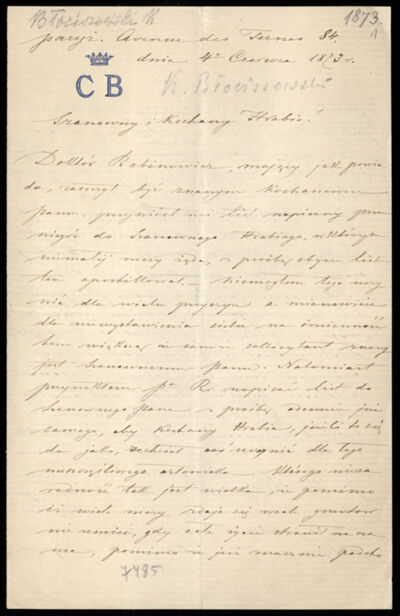 Błociszewski K
1873.
1
paryż. Avenue des Ternes 84
dnia 4go Czerwca 1873 r.
CB
K. Błociszewski
Szanowny i Kochany Hrabio!
Doktór Rabinowicz, mający jak powia
da, zaszczyt być znanym Kochanemu
panu, przyniósł mi list napisany przez
niego do Szanownego Hrabiego, w którym
z prośbą abym list
ten apostillował. — niemogłem tego uczy
nić dla wielu przyczyn a mianowicie
dla niewystawienia siebie na śmieszność
tem większą że sam sollicytant znany
jest Szanownemu panu. Natomiast
przyrzekłem pu R. napisać list do
Szanownego pana z prośbą odemnie jeże
samego, aby Kochany Hrabia, jeżeli to się
da jako, zechciał coś uczynić dla tego
nieszczęśliwego człowieka którego nieza
radność tak jest wielka, że pomimo
iż wiele mery zdaje się wiele gruntow
nie umieć, gdy całe życie strawił na na
uce, pomimo że jest znacznie podcho
7485